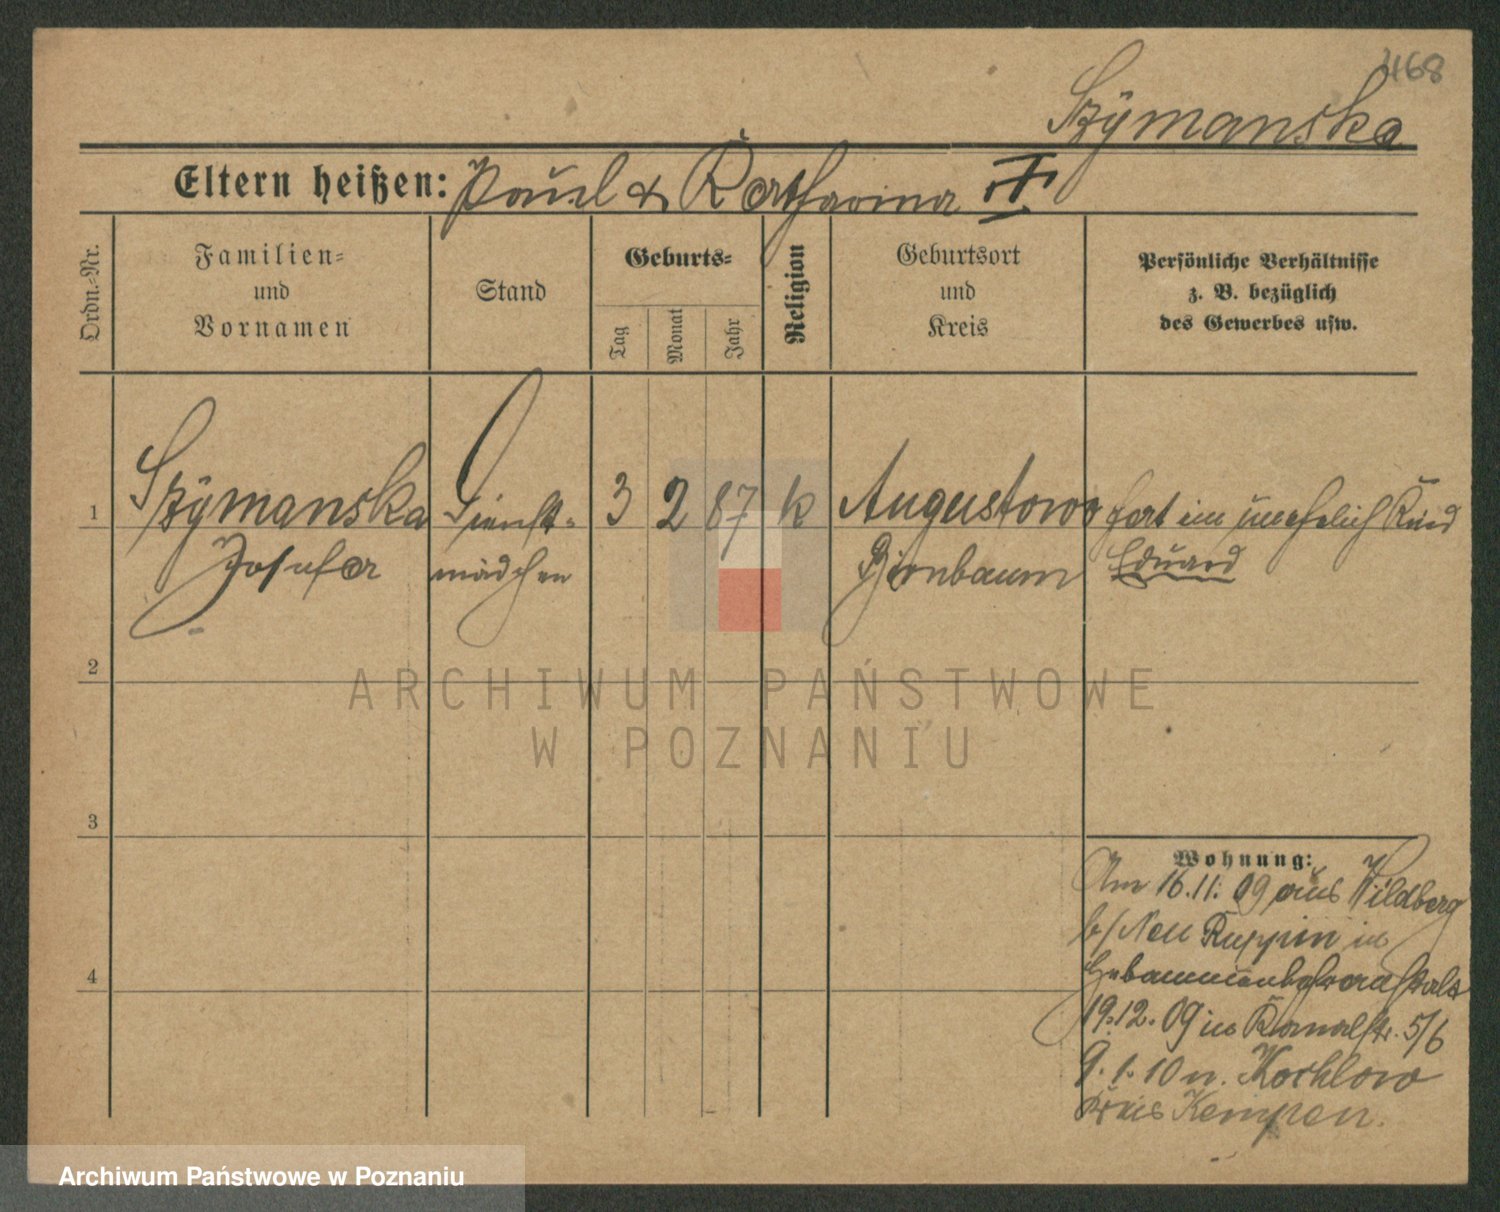 468
Szÿmanska
Eltern heißen: Paul & Katharina
Ordn.-Nr.
Familien- und Vornamen
Stand
Geburts-
Tag
Monat
Jahr
Religion
Geburtsort und Kreis
Persönliche Verhältnisse
z. B. bezüglich
des Gewerbes usw.
1 Szÿmanska Dienst- 3 2 87 k Augustowo hat ein unehelich Kind
Josefa mädchen Birnbaum Eduard
2
3
4
Wohnung:
Am 16.11.09 aus Wildberg
b/ Neu Ruppin in
Hebammenlehranstalt
19.12.09 in Kanalstr. 5/6
9.1.10 n. Kochlow
Kreis Kempen.
ARCHIWUM PAŃSTWOWE
W POZNANIU
Archiwum Państwowe w Poznaniu